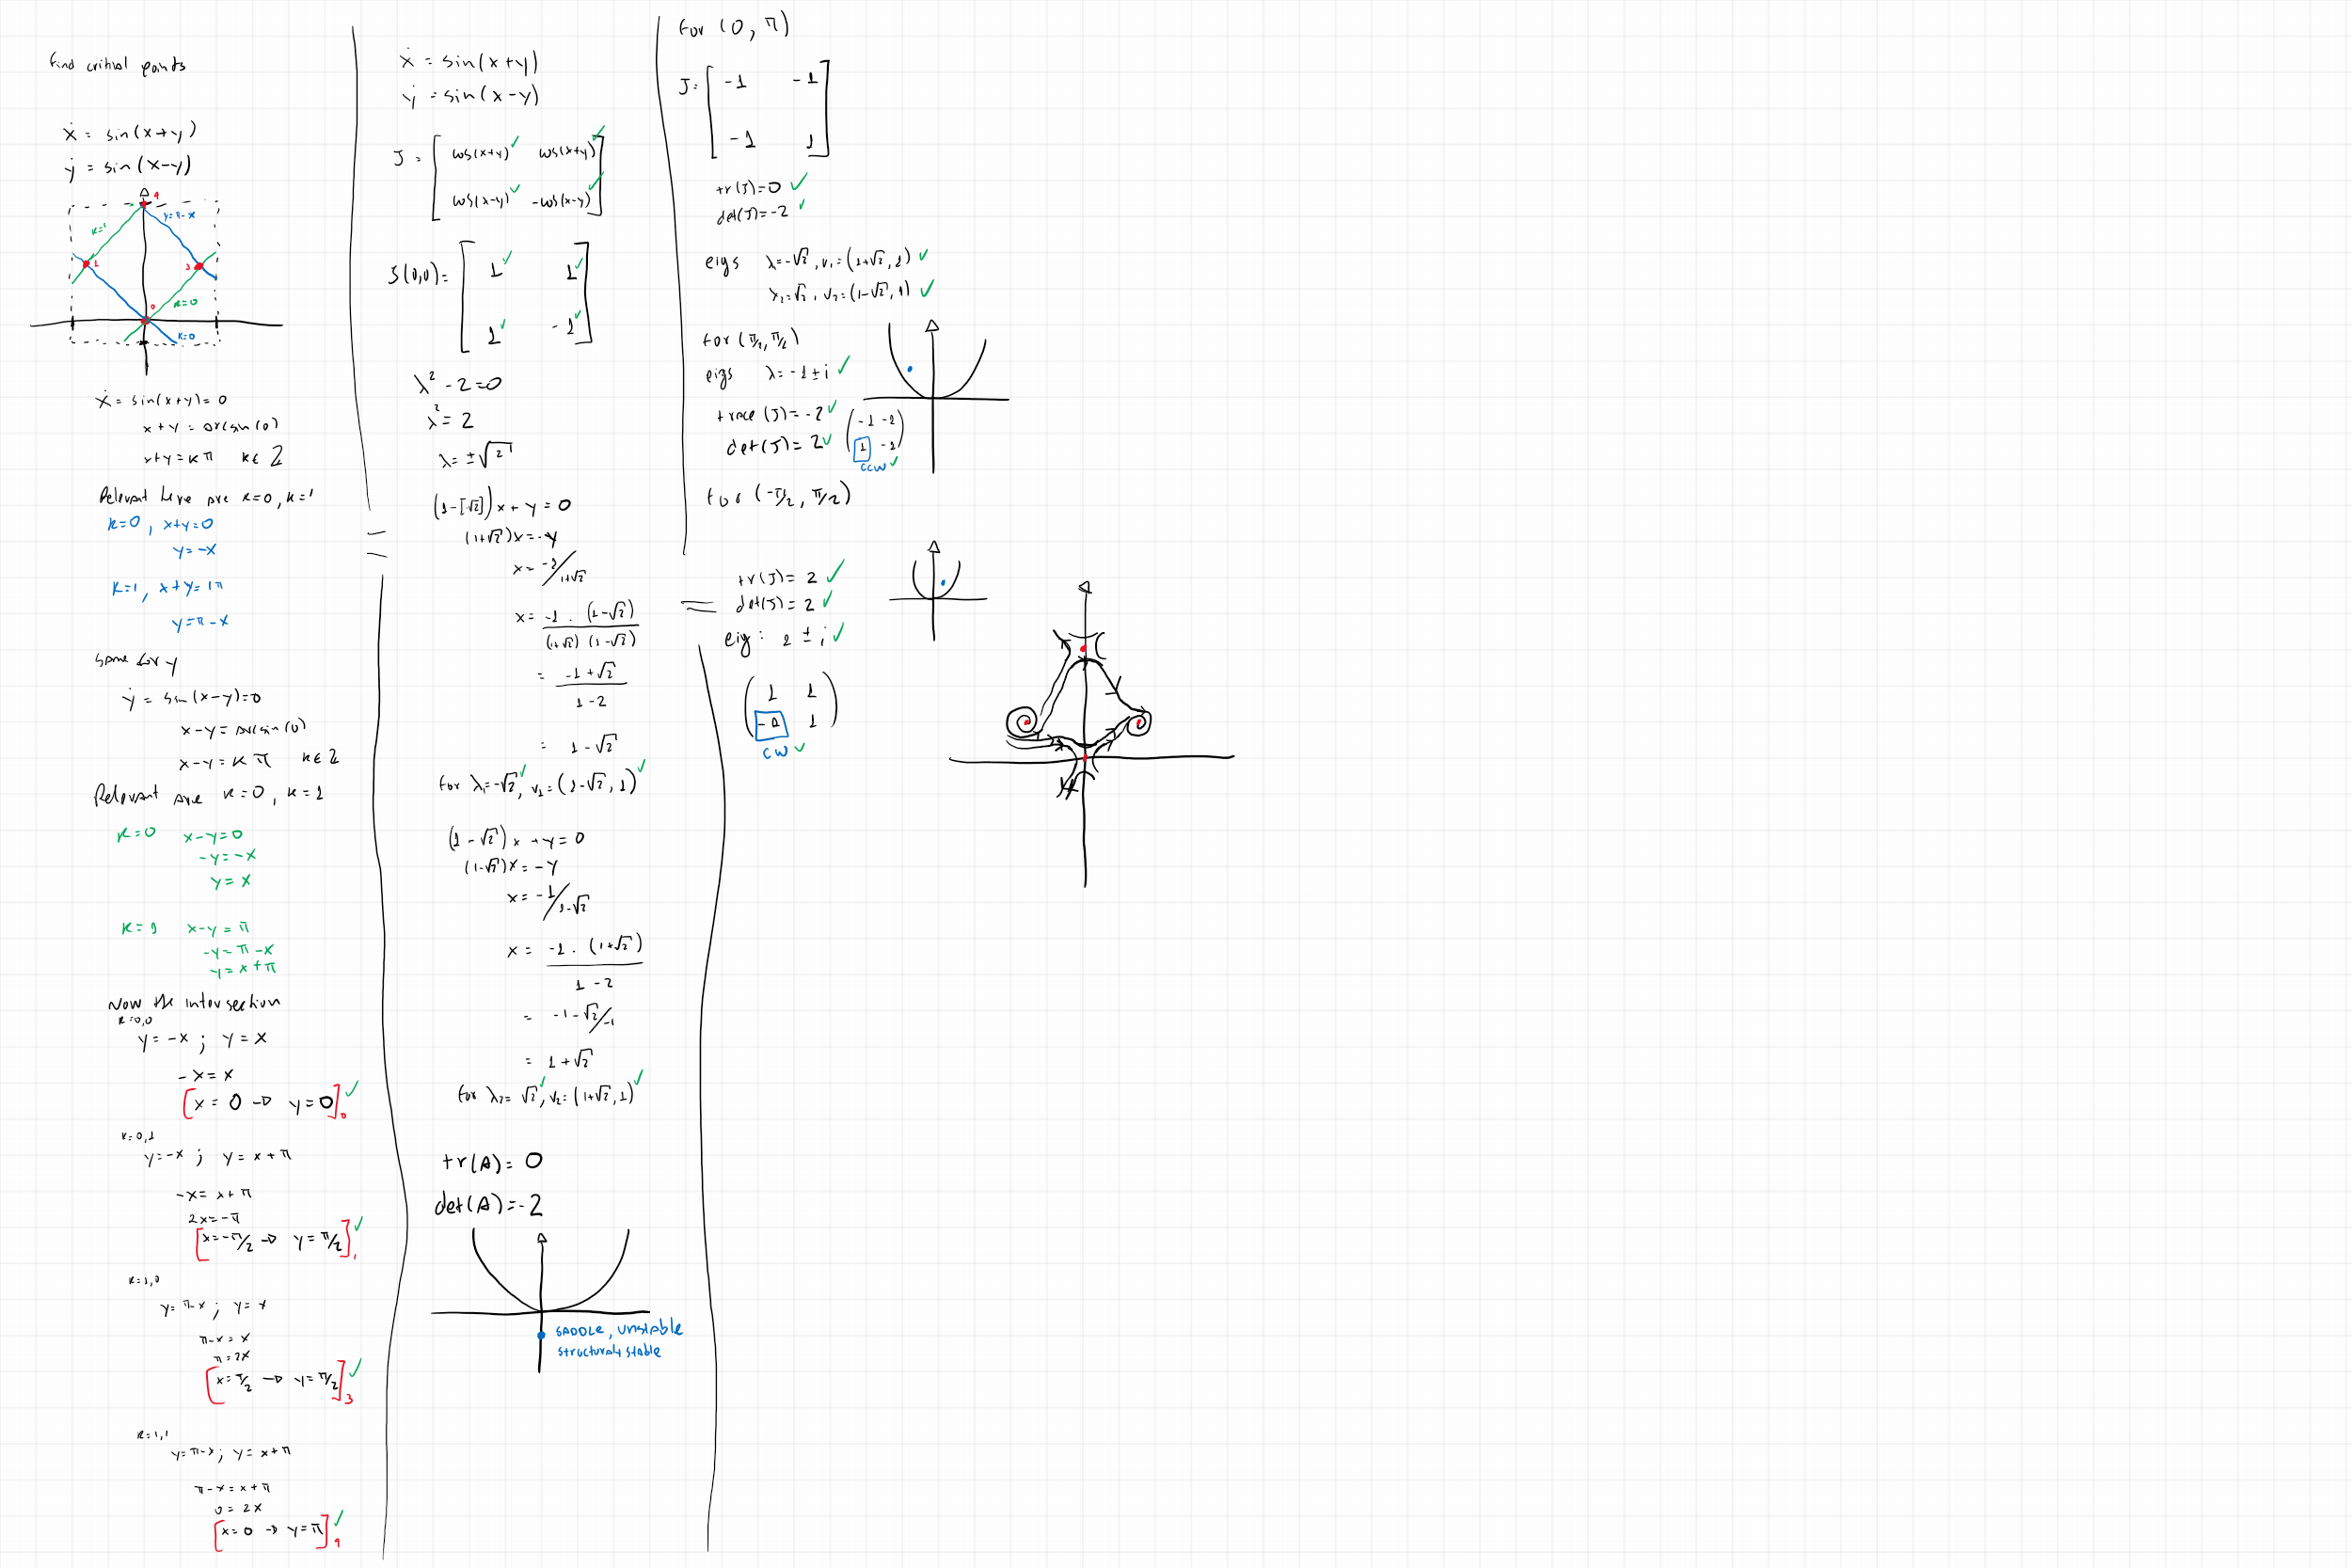 find critical points
ẋ = sin(x+y)
ẏ = sin(x-y)
4
k=1
y=π-x
1
3
0
k=0
k=0
ẋ = sin(x+y)=0
x+y = arcsin(0)
x+y = kπ k∈Z
Relevant here are k=0, k=1
k=0, x+y=0
y=-x
k=1, x+y=1π
y=π-x
same for y
ẏ = sin(x-y)=0
x-y = arcsin(0)
x-y = kπ k∈Z
Relevant are k=0, k=1
k=0 x-y=0
-y=-x
y=x
k=1 x-y=π
-y=π-x
y=x+π
Now the intersection
k=0,0
y=-x ; y=x
-x=x
[x=0 → y=0]₀ ✓
k=0,1
y=-x ; y=x+π
-x=x+π
2x=-π
[x=-π/2 → y=π/2]₁ ✓
k=1,0
y=π-x ; y=x
π-x=x
π=2x
[x=π/2 → y=π/2]₃ ✓
k=1,1
y=π-x ; y=x+π
π-x=x+π
0=2x
[x=0 → y=π]₄ ✓
ẋ = sin(x+y)
ẏ = sin(x-y)
J = [ cos(x+y) ✓ cos(x+y) ✓
cos(x-y) ✓ -cos(x-y) ✓ ]
J(0,0) = [ 1 ✓ 1 ✓
1 ✓ -1 ✓ ]
λ² - 2 = 0
λ² = 2
λ = ±√2
(1-[-√2])x + y = 0
(1+√2)x = -y
x = -1/1+√2
x = -1 · (1-√2)
(1+√2) (1-√2)
= -1+√2
1-2
= 1-√2
for λ₁=-√2 ✓, v₁=(1-√2, 1) ✓
(1-√2)x + y = 0
(1-√2)x = -y
x = -1/1-√2
x = -1 · (1+√2)
1-2
= -1-√2/-1
= 1+√2
for λ₂=√2 ✓, v₂=(1+√2, 1) ✓
tr(A) = 0
det(A) = -2
SADDLE, unstable
structuraly stable
for (0, π)
J = [ -1 -1
-1 1 ]
tr(J)=0 ✓
det(J)=-2 ✓
eigs λ=-√2, v₁=(1+√2, 1) ✓
λ₂=√2, v₂=(1-√2, 1) ✓
for (π/2, π/2)
eigs λ=-1±i ✓
trace(J)=-2 ✓
det(J)=2 ✓
( -1 -1
1 -1 )
CCW ✓
for (-π/2, π/2)
tr(J)=2 ✓
det(J)=2 ✓
eig: 1±i ✓
( 1 1
-1 1 )
CW ✓